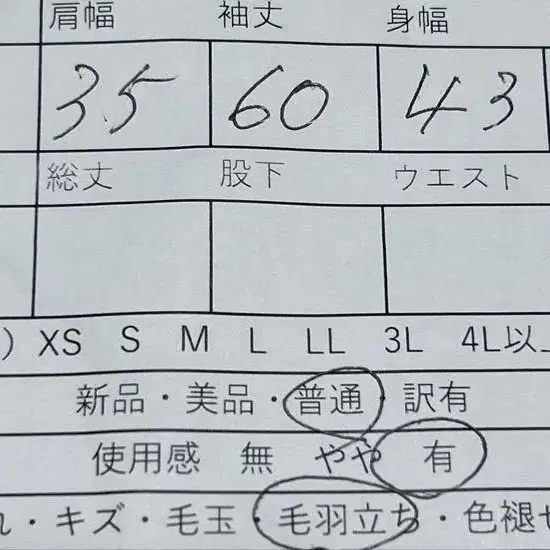 肩幅 袖丈 身幅
35 60 43
総丈 股下 ウエスト
) XS S M L LL 3L 4L以上
新品・美品・普通・訳有
使用感 無 やや 有
れ・キズ・毛玉・毛羽立ち・色褪せ